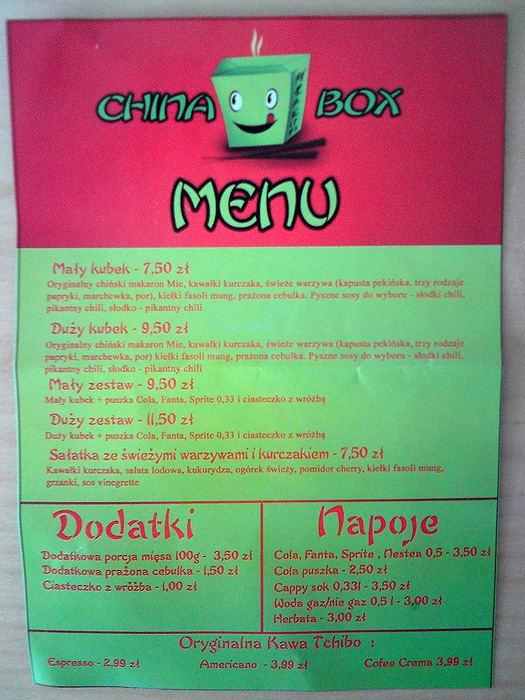 CHINA BOX
MENU
Mały kubek - 7,50 zł
Oryginalny chiński makaron Mie, kawałki kurczaka, świeże warzywa (kapusta pekińska, trzy rodzaje
papryki, marchewka, por), kiełki fasoli mung, prażona cebulka. Pyszne sosy do wyboru - słodki chili,
pikantny chili, słodko - pikantny chili
Duży kubek - 9,50 zł
Oryginalny chiński makaron Mie, kawałki kurczaka, świeże warzywa (kapusta pekińska, trzy rodzaje
papryki, marchewka, por) kiełki fasoli mung, prażona cebulka. Pyszne sosy do wyboru - słodki chili,
pikantny chili, słodko - pikantny chili
Mały zestaw - 9,50 zł
Mały kubek + puszka Cola, Fanta, Sprite 0,33 i ciasteczko z wróżbą
Duży zestaw - 11,50 zł
Duży kubek + puszka Cola, Fanta, Sprite 0,33 i ciasteczko z wróżbą
Sałatka ze świeżymi warzywami i kurczakiem - 7,50 zł
Kawałki kurczaka, sałata lodowa, kukurydza, ogórek świeży, pomidor cherry, kiełki fasoli mung,
grzanki, sos vinegrette
Dodatki
Dodatkowa porcja mięsa 100g - 3,50 zł
Dodatkowa prażona cebulka - 1,50 zł
Ciasteczko z wróżba - 1,00 zł
Napoje
Cola, Fanta, Sprite , Nestea 0,5 - 3,50 zł
Cola puszka - 2,50 zł
Cappy sok 0,33l - 3,50 zł
Woda gaz/nie gaz 0,5 l - 3,00 zł
Herbata - 3,00 zł
Oryginalna Kawa Tchibo :
Espresso - 2,99 zł Americano - 3,99 zł Cofee Crema 3,99 zł